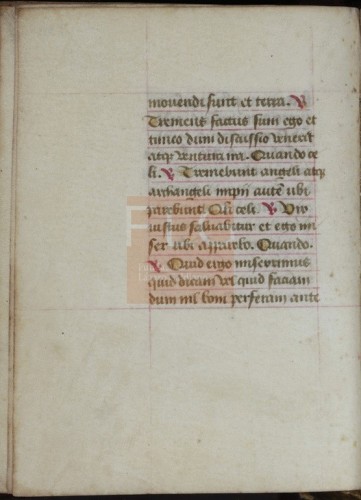 movendi sunt et terra. V
Tremens factus sum ego et
timeo dum discussio venerit
atq ventura ira. Quando ce
li. V Tremebunt angeli atq
archangeli impii aute ubi
parebunt Qn celi. V Vix
iustus salvabitur et ego mi
ser ubi apparebo. Quando.
V Quid ergo miserrimus
quid dicam vel quid faciam
dum nil boni perferam ante